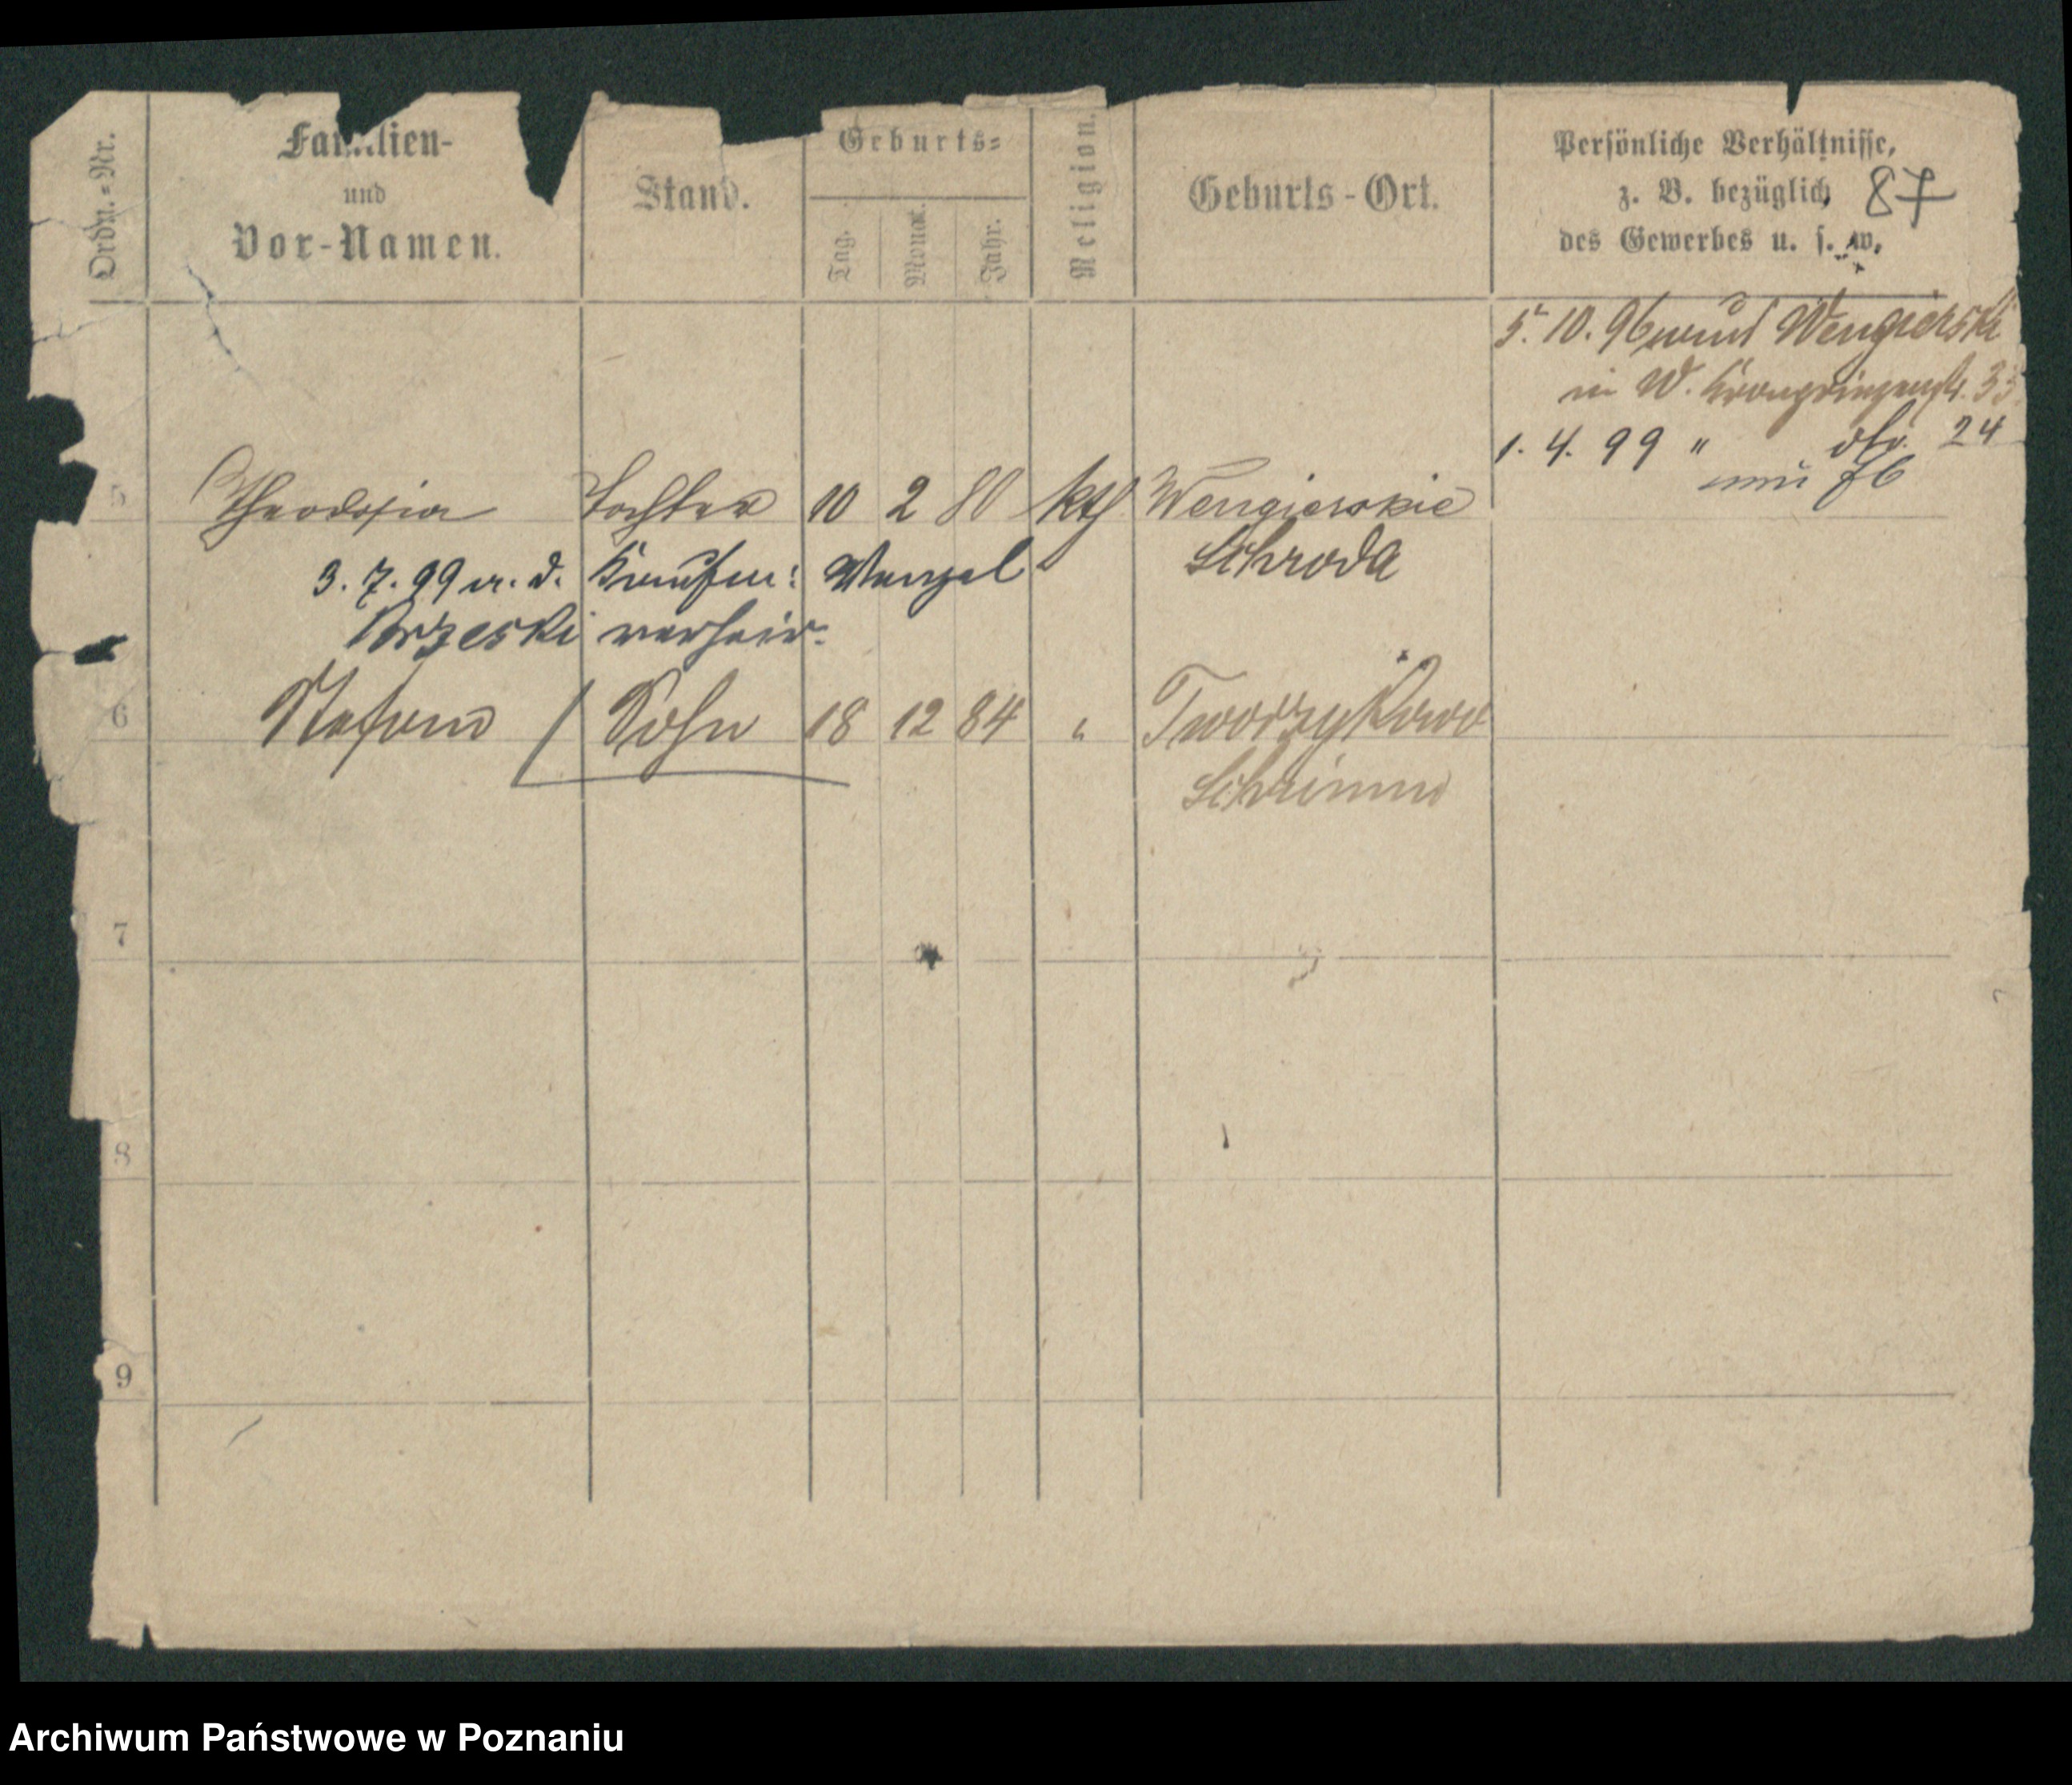 Ordn.=Nr.
Familien-
und
Vor-Namen.
Stand.
Geburts=
Tag.
Monat.
Jahr.
Religion.
Geburts-Ort.
Persönliche Verhältnisse,
z. B. bezüglich 87
des Gewerbes u. s. w.
5. 10. 96 Wengierski
in W. Kronprinzenstr. 33
1. 4. 99 " dto. 24
5 Theodosia Tochter 10 2 80 kth Wengierskie
Schroda
3. 7. 99 m. d. Kaufm: Wenzel
Orzeski verheir.
6 Stefan Sohn 18 12 84 " Tworzykowo
Schrimm
7
8
9
Archiwum Państwowe w Poznaniu